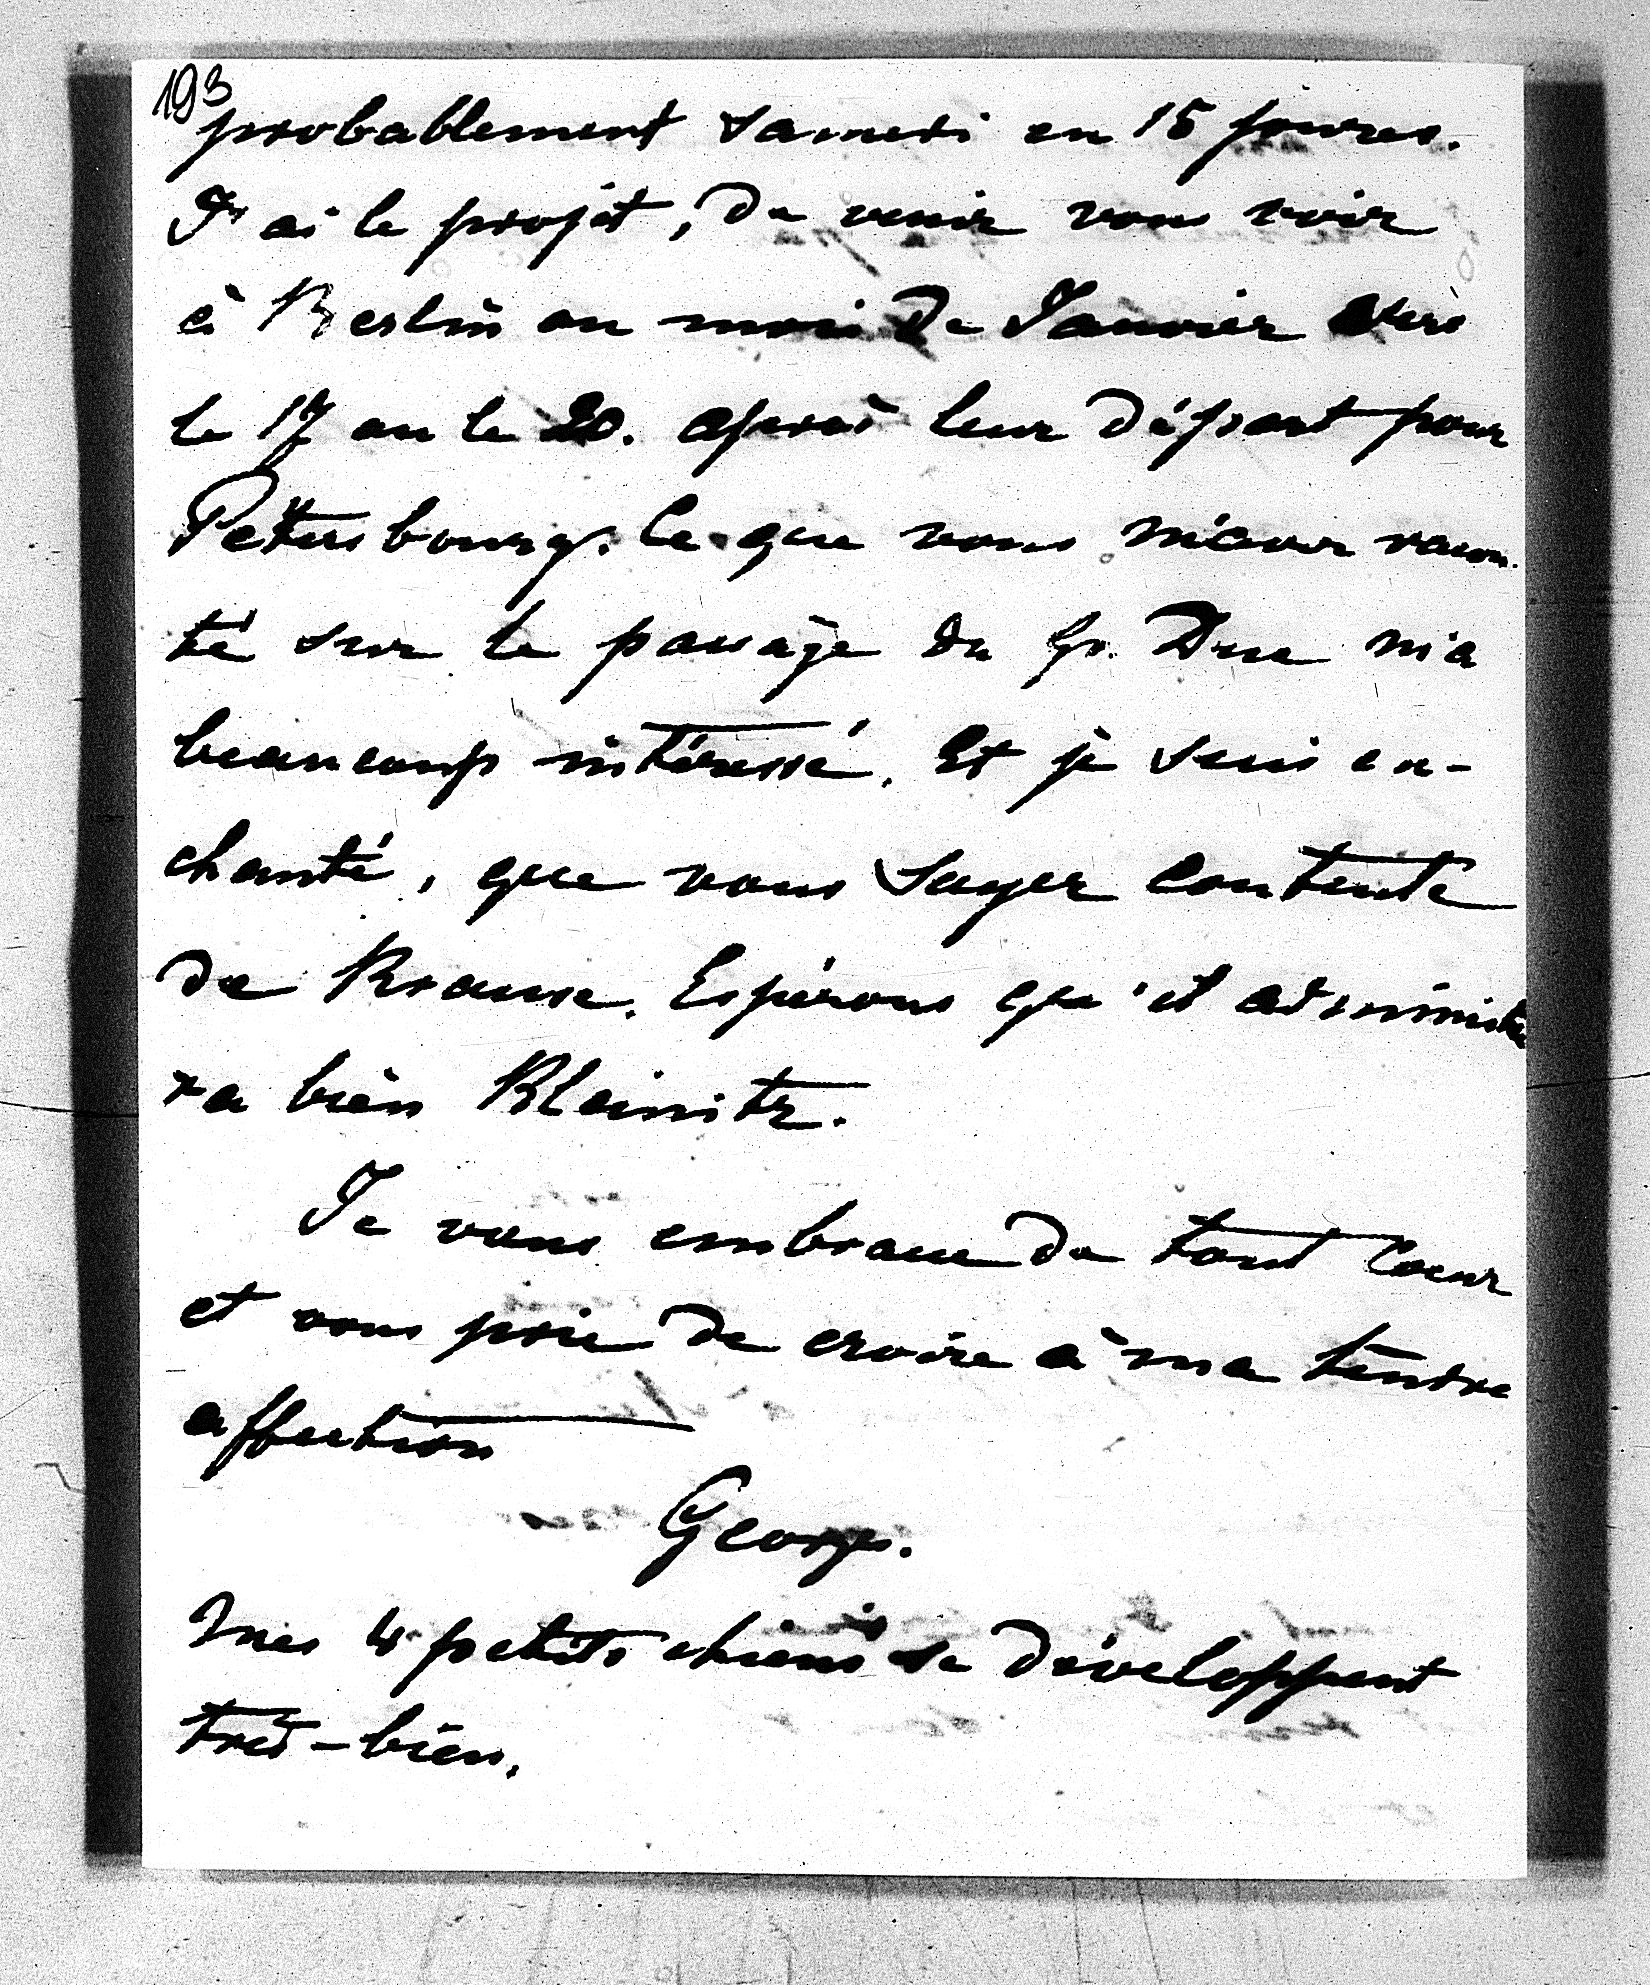 193
probablement samedi en 15 jours.
J'ai le projet, de venir vous voir
à Berlin au mois de Janvier vers
le 17 ou le 20. après leur départ pour
Petersbourg. Ce que vous m'avez racon-
té sur le passage du Gr. Duc m'a
beaucoup intéressé. Et je suis en-
chanté, que vous soyez contente
de Krause. Espérons qu'il administre
ra bien Kleinitz.
Je vous embrasse de tout coeur
et vous prie de croire à ma tendre
affection
Georges.
Mes 4 petits chiens se développent
très-bien.